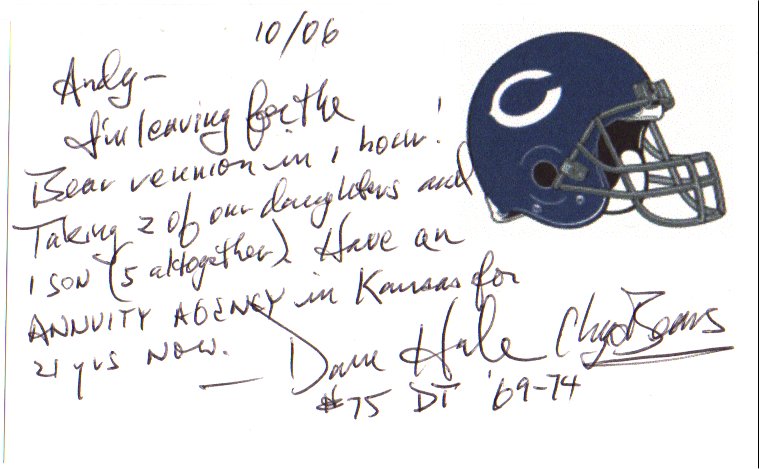 10/06
Andy-
I'm leaving for the
Bear reunion in 1 hour!
Taking 2 of our daughters and
1 SON (5 altogether). Have an
ANNUITY AGENCY in Kansas for
21 yrs NOW.
— Dave Hale Chgo Bears
#75 DT '69-74